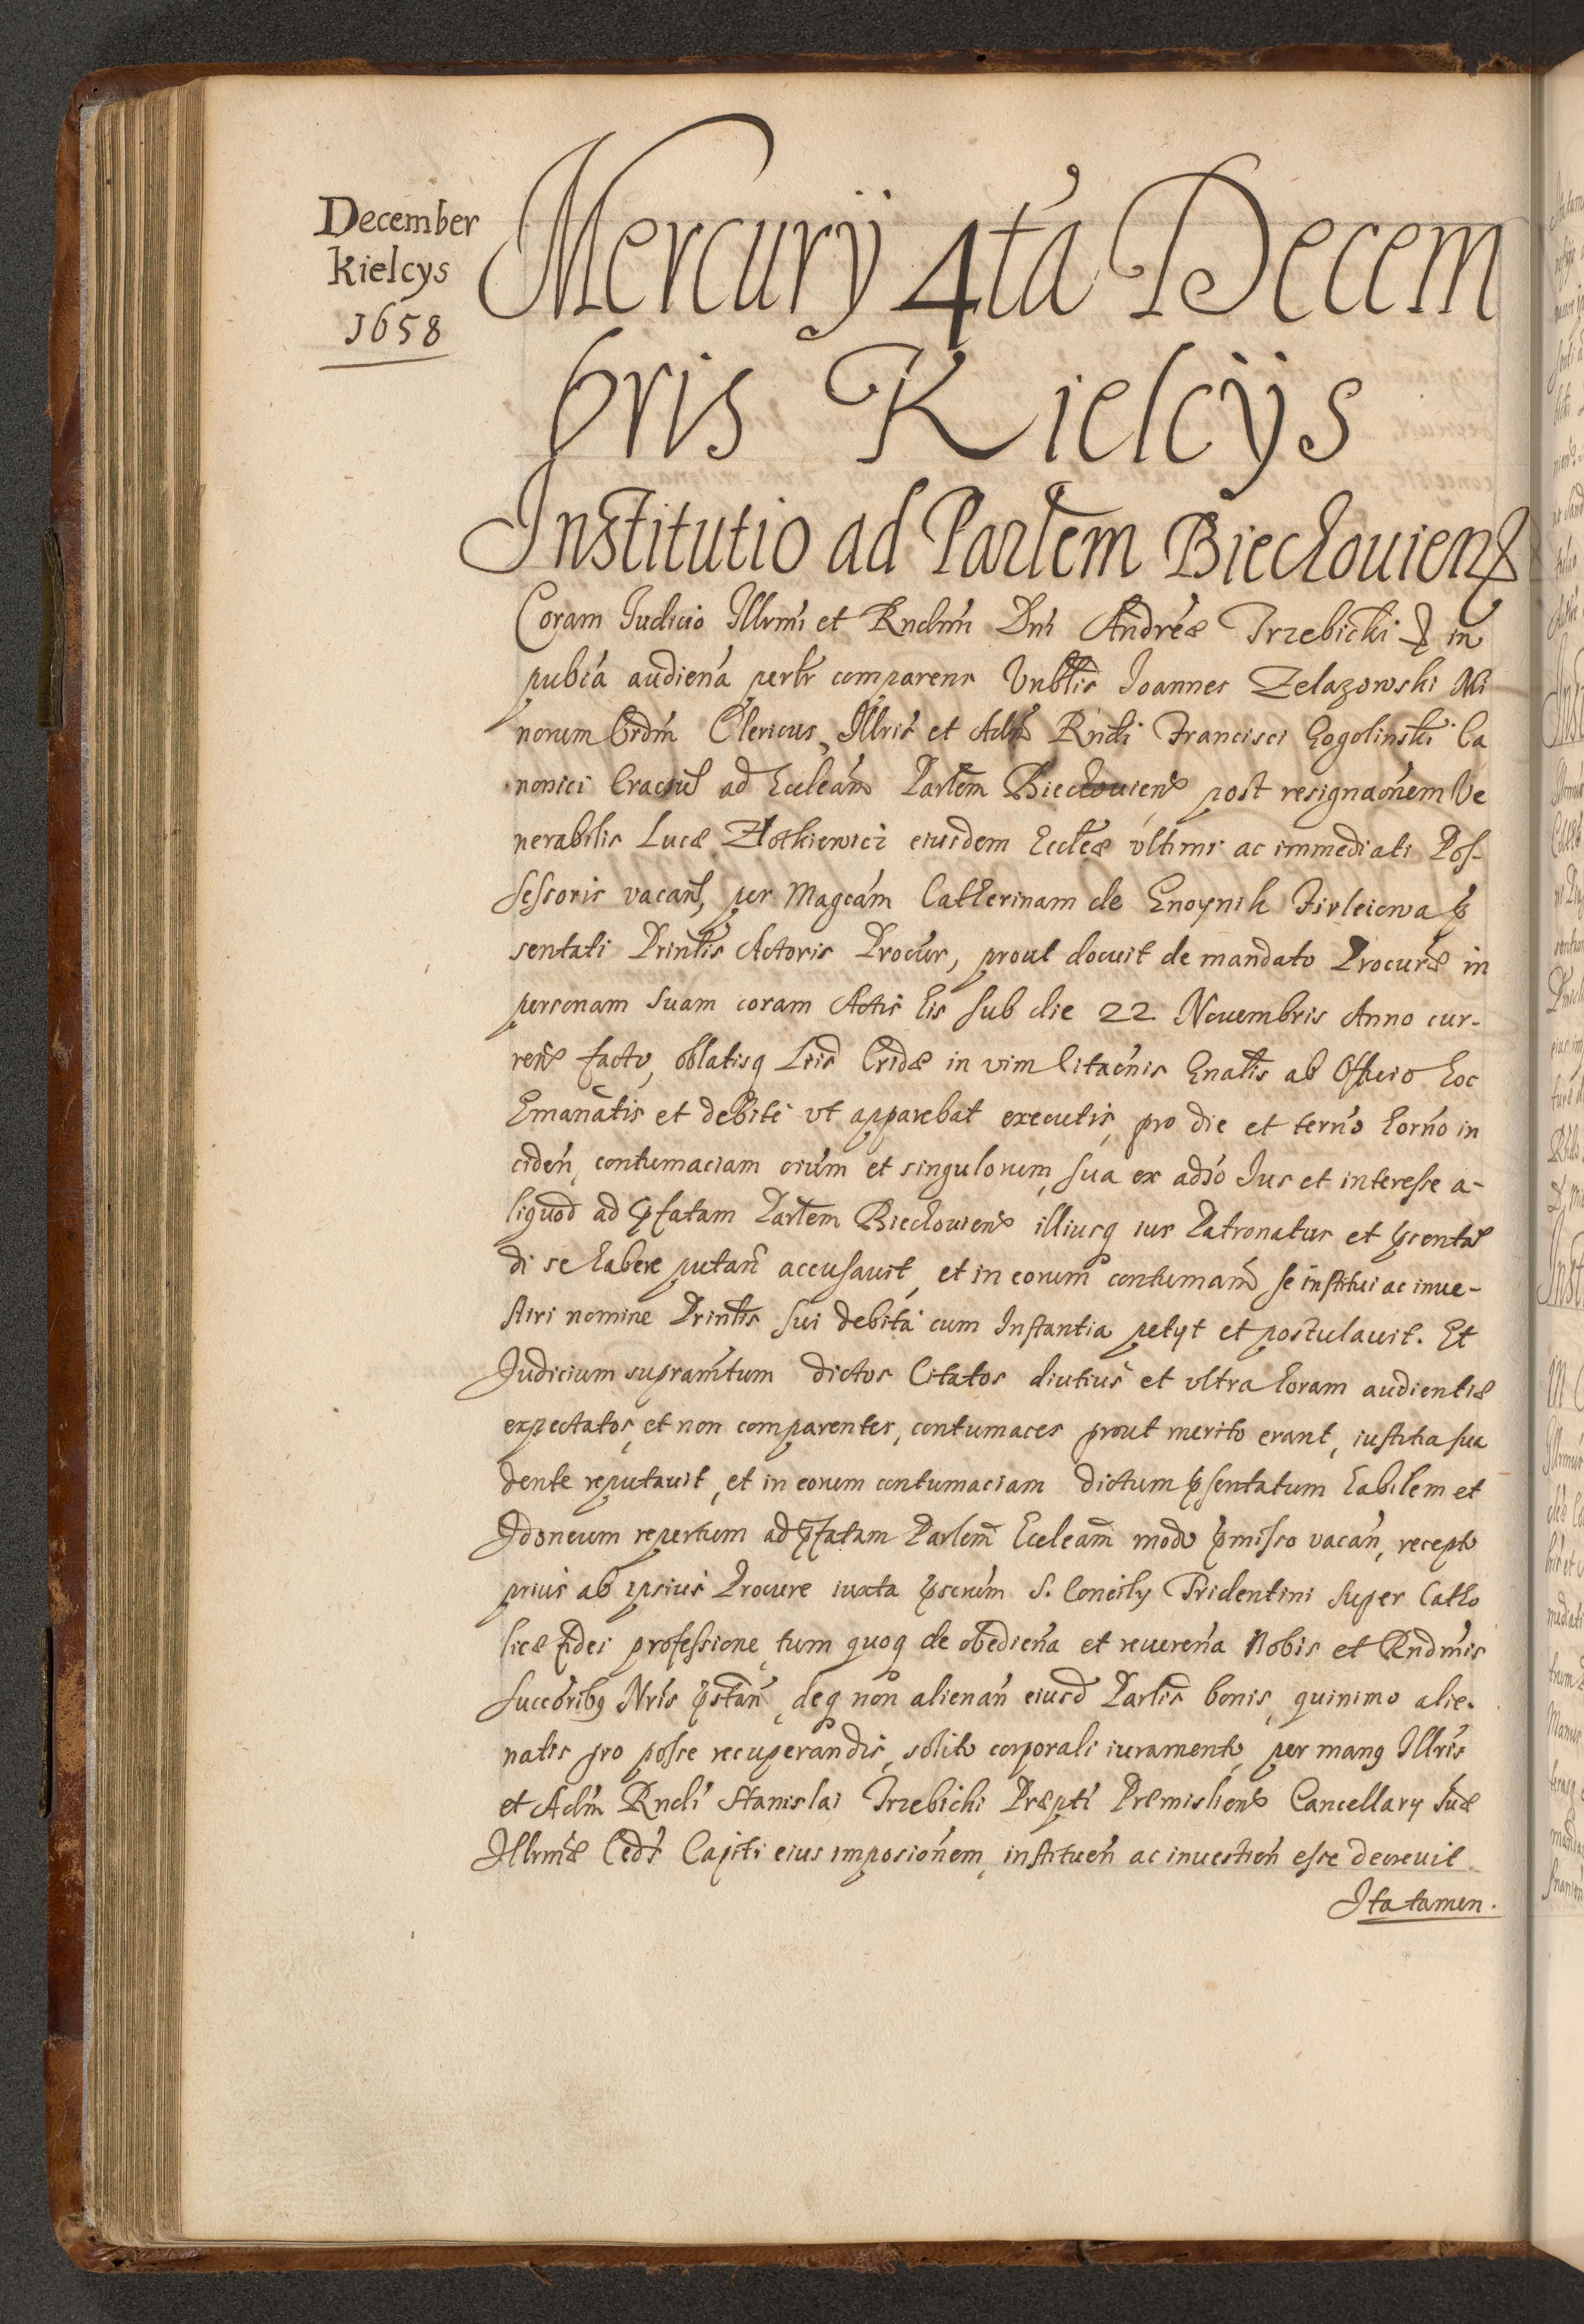 December
Kielcys
1658
Mercurij 4ta Decem
bris Kielcijs
Institutio ad Parlem Biechouiens
Coram Iudicio Illrmi et Rndmi Dni Andreæ Trzebicki & in
pubca audiena perlr comparens Vnblis Ioannes Zelazowski Mi
norum Ordm Clericus, Illris et Adm Rndi Francisci Gogolinski Ca
nonici Cracouł ad Eccleam Parlem Biechouiens post resignaonem Ve
nerabilis Lucæ Złotkiewicz eiusdem Eccleæ vltimi ac immediati Pos-
sessoris vacant, per Magcam Catherinam de Gnoynik Firleiowa p
sentati Prinlis Actoris Procur, prout docuit de mandato Procuræ in
personam suam coram Actis his sub die 22 Nouembris Anno cur-
rens facto, oblatisq Lris Cridæ in vim Citaonis Gnalis ab Officio hoc
Emanatis et debite vt apparebat executis, pro die et termo horno in
ciden, contumaciam oium et singulorum, sua ex adso Ius et interesse a-
liquod ad pfatam Parlem Biechouiens illiusq ius Patronatus et psentan
di se habere putan accusauit, et in eorum contumam se institui ac inue-
stiri nomine Prinlis sui debita cum Instantia petyt et postulauit. Et
Judicium supramtum dictos Citatos diutius et vltra horam audientiæ
expectatos, et non comparentes, contumaces prout merito erant, iustitia sua
dente reputauit, et in eorum contumaciam dictum psentatum habilem et
Idoneum repertum ad pfatam Parlem Eccleam modo pmisso vacan, recepto
prius ab ipsius Procure iuxta pscrum S. Concily Tridentini super Catho
licæ fidei professione, tum quoq de obediena et reuerena Nobis et Rndmis
Succoribq Nris pstan, deq non alienan eiusd Parlis bonis, quinimo alie-
natis pro posse recuperandis, solito corporali iuramento, per manq Illris
et Adm Rndi Stanislai Trzebicki Præpti Præmisliens Cancellary Suæ
Illrmæ Cedis Capiti eius imposionem, instituen ac inuestien esse decreuit
Ita tamen.